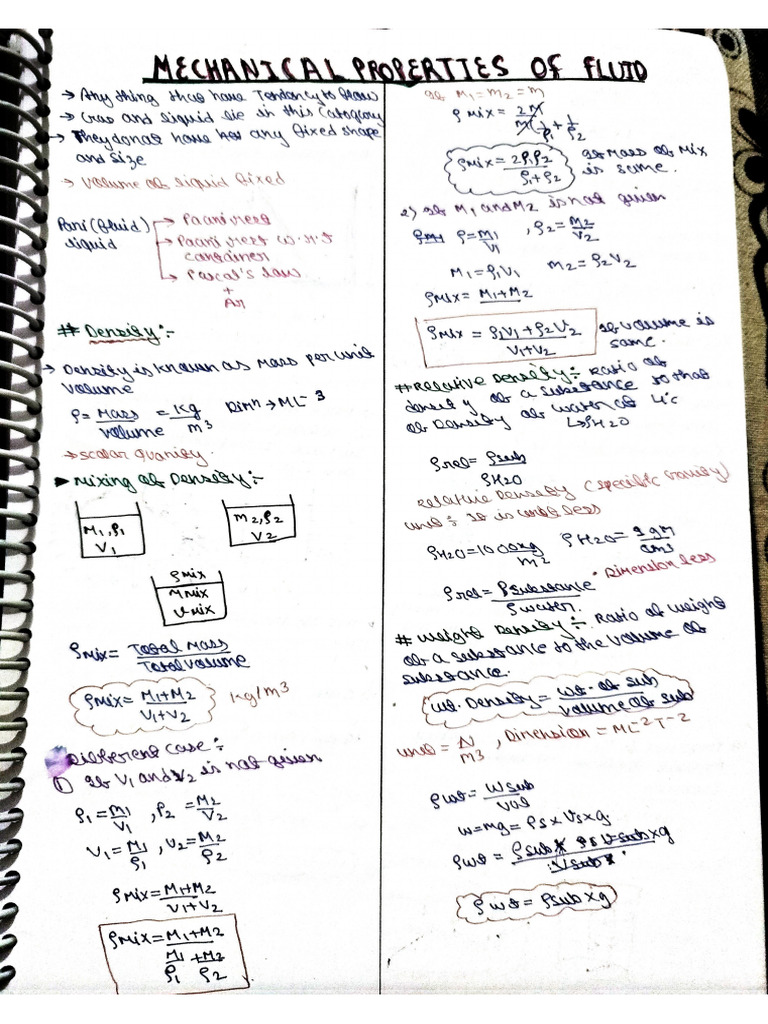 MECHANICAL PROPERTIES OF FLUID
→ Anything that have Tendency to flow
→ Gas and liquid lie in this Category
→ They donot have has any fixed shape
and size
→ Volume of liquid fixed
Pani (fluid)
liquid
→ Paani rest
→ Paani rest w.r.t
container
→ Pascal's law
+
# Density:-
→ Density is known as Mass per unit
volume
ρ = Mass/volume = Kg/m³ Dimn → ML⁻³
→ scalar quanity.
► Mixing of Density:-
M1, ρ1
V1
M2, ρ2
V2
ρMix
MMix
VMix
ρMix = Total Mass/Total volume
ρMix = M1+M2/V1+V2 Kg/m³
Different case:-
① If V1 and V2 is not given
ρ1 = M1/V1, ρ2 = M2/V2
V1 = M1/ρ1, V2 = M2/ρ2
ρMix = M1+M2/V1+V2
ρMix = M1+M2/M1/ρ1 + M2/ρ2
If M1 = M2 = m
ρMix = 2M/M(1/ρ1 + 1/ρ2
ρMix = 2ρ1ρ2/ρ1+ρ2 If Mass of Mix
is same.
2) If M1 and M2 is not given
ρ = M1/V1, ρ2 = M2/V2
M1 = ρ1V1 M2 = ρ2V2
ρMix = M1+M2
ρMix = ρ1V1 + ρ2V2/V1+V2 If volume is
same.
# Relative Density:- Ratio of
density of a substance to that
of Density of water at 4°c
↳ρH2O
ρrel = ρsub/ρH2O
Relative Density (specific Gravity)
unit:- It is unit less
ρH2O = 1000kg/m² ρH2O = 1gm/cm³
ρrel = ρsubstance/ρwater. • Dimension less
# Weight Density:- Ratio of weight
of a substance to the volume of
substance.
wt. Density = wt. of sub/volume of sub
unit = N/m³, Dimension = ML⁻²T⁻²
ρwt = Wsub/Vol
w=mg = ρs × Vs × g
ρwt = ρsub × Vsub × g/Vsub
ρwt = ρsub × g